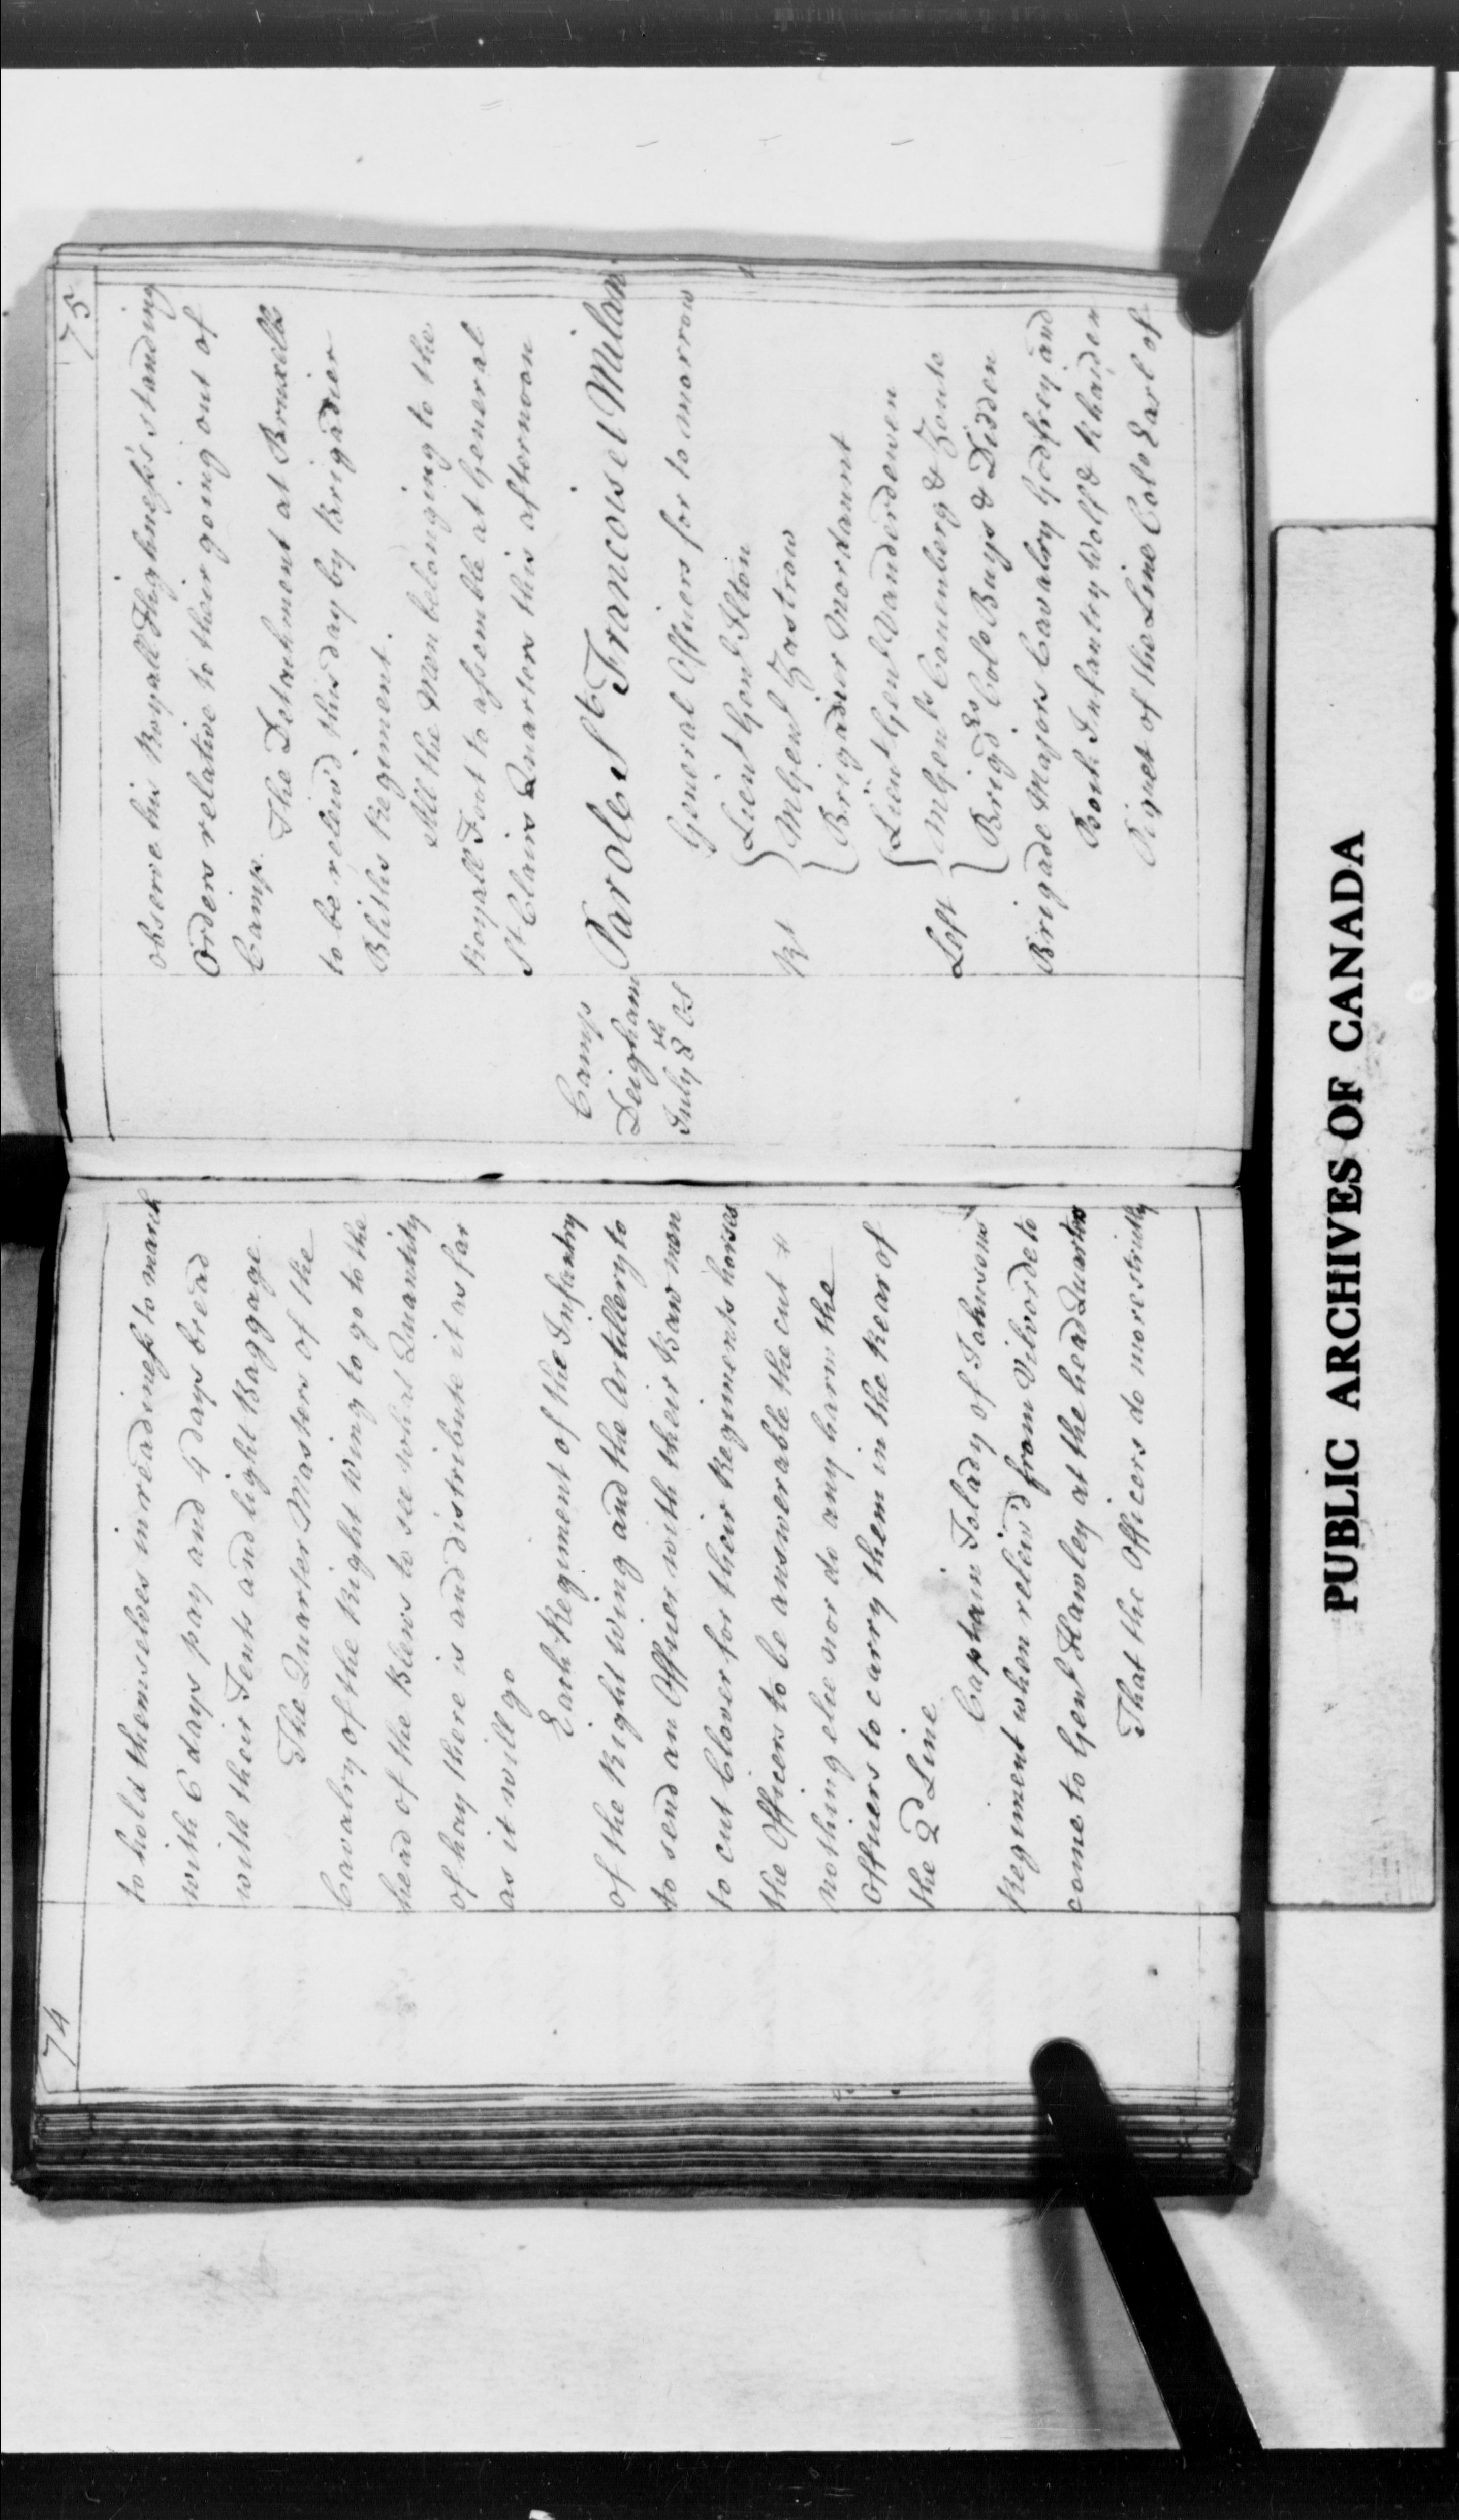 74
to hold themselves in readiness to march
with 6 days pay and 4 days bread
with their Tents and light Baggage.
The Quarter Masters of the
Cavalry of the Right Wing to go to the
head of the Blews to see what Quantity
of hay there is and distribute it as far
as it will go
Each Regiment of the Infantry
of the Right wing and the Artillery to
to send an Officer with their Baw men
to cut Clover for their Regiments horses
the Officers to be answerable the cut
nothing else nor do any harm the
Officers to carry them in the Rear of
the 2d Line
Captain Tolady of Johnsons
Regiment when reliev'd from Vilvorde to
come to Genl Hawley at the head Quarters
That the Officers do more strictly
75
observe his Royall Highness's standing
Orders relative to their going out of
Camp.
The Detachment at Bruxells
to be reliev'd this day by Brigadier
Bliths Regiment.
All the Men belonging to the
Royall Foot to assemble at General
St Clairs Quarters this afternoon
Camp
Deigham
July 8th OS
Parole St Francois et Milan
General Officers for to morrow
Rt
Lieut Genl Ilton
M Genl Zastrow
Brigadier Mordaunt
Left
Lieut Genl Vanderdewen
M Genls Couenberg & Zoute
Brigdrs Colo Buys & Didden
Brigade Majors Cavalry Godfrey and
Bout Infantry Wolf & Rhaiden
Piquet of the Line Colo Earl of
PUBLIC ARCHIVES OF CANADA